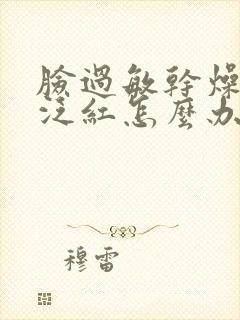 臉過敏幹燥
泛紅怎麼办
穆雷